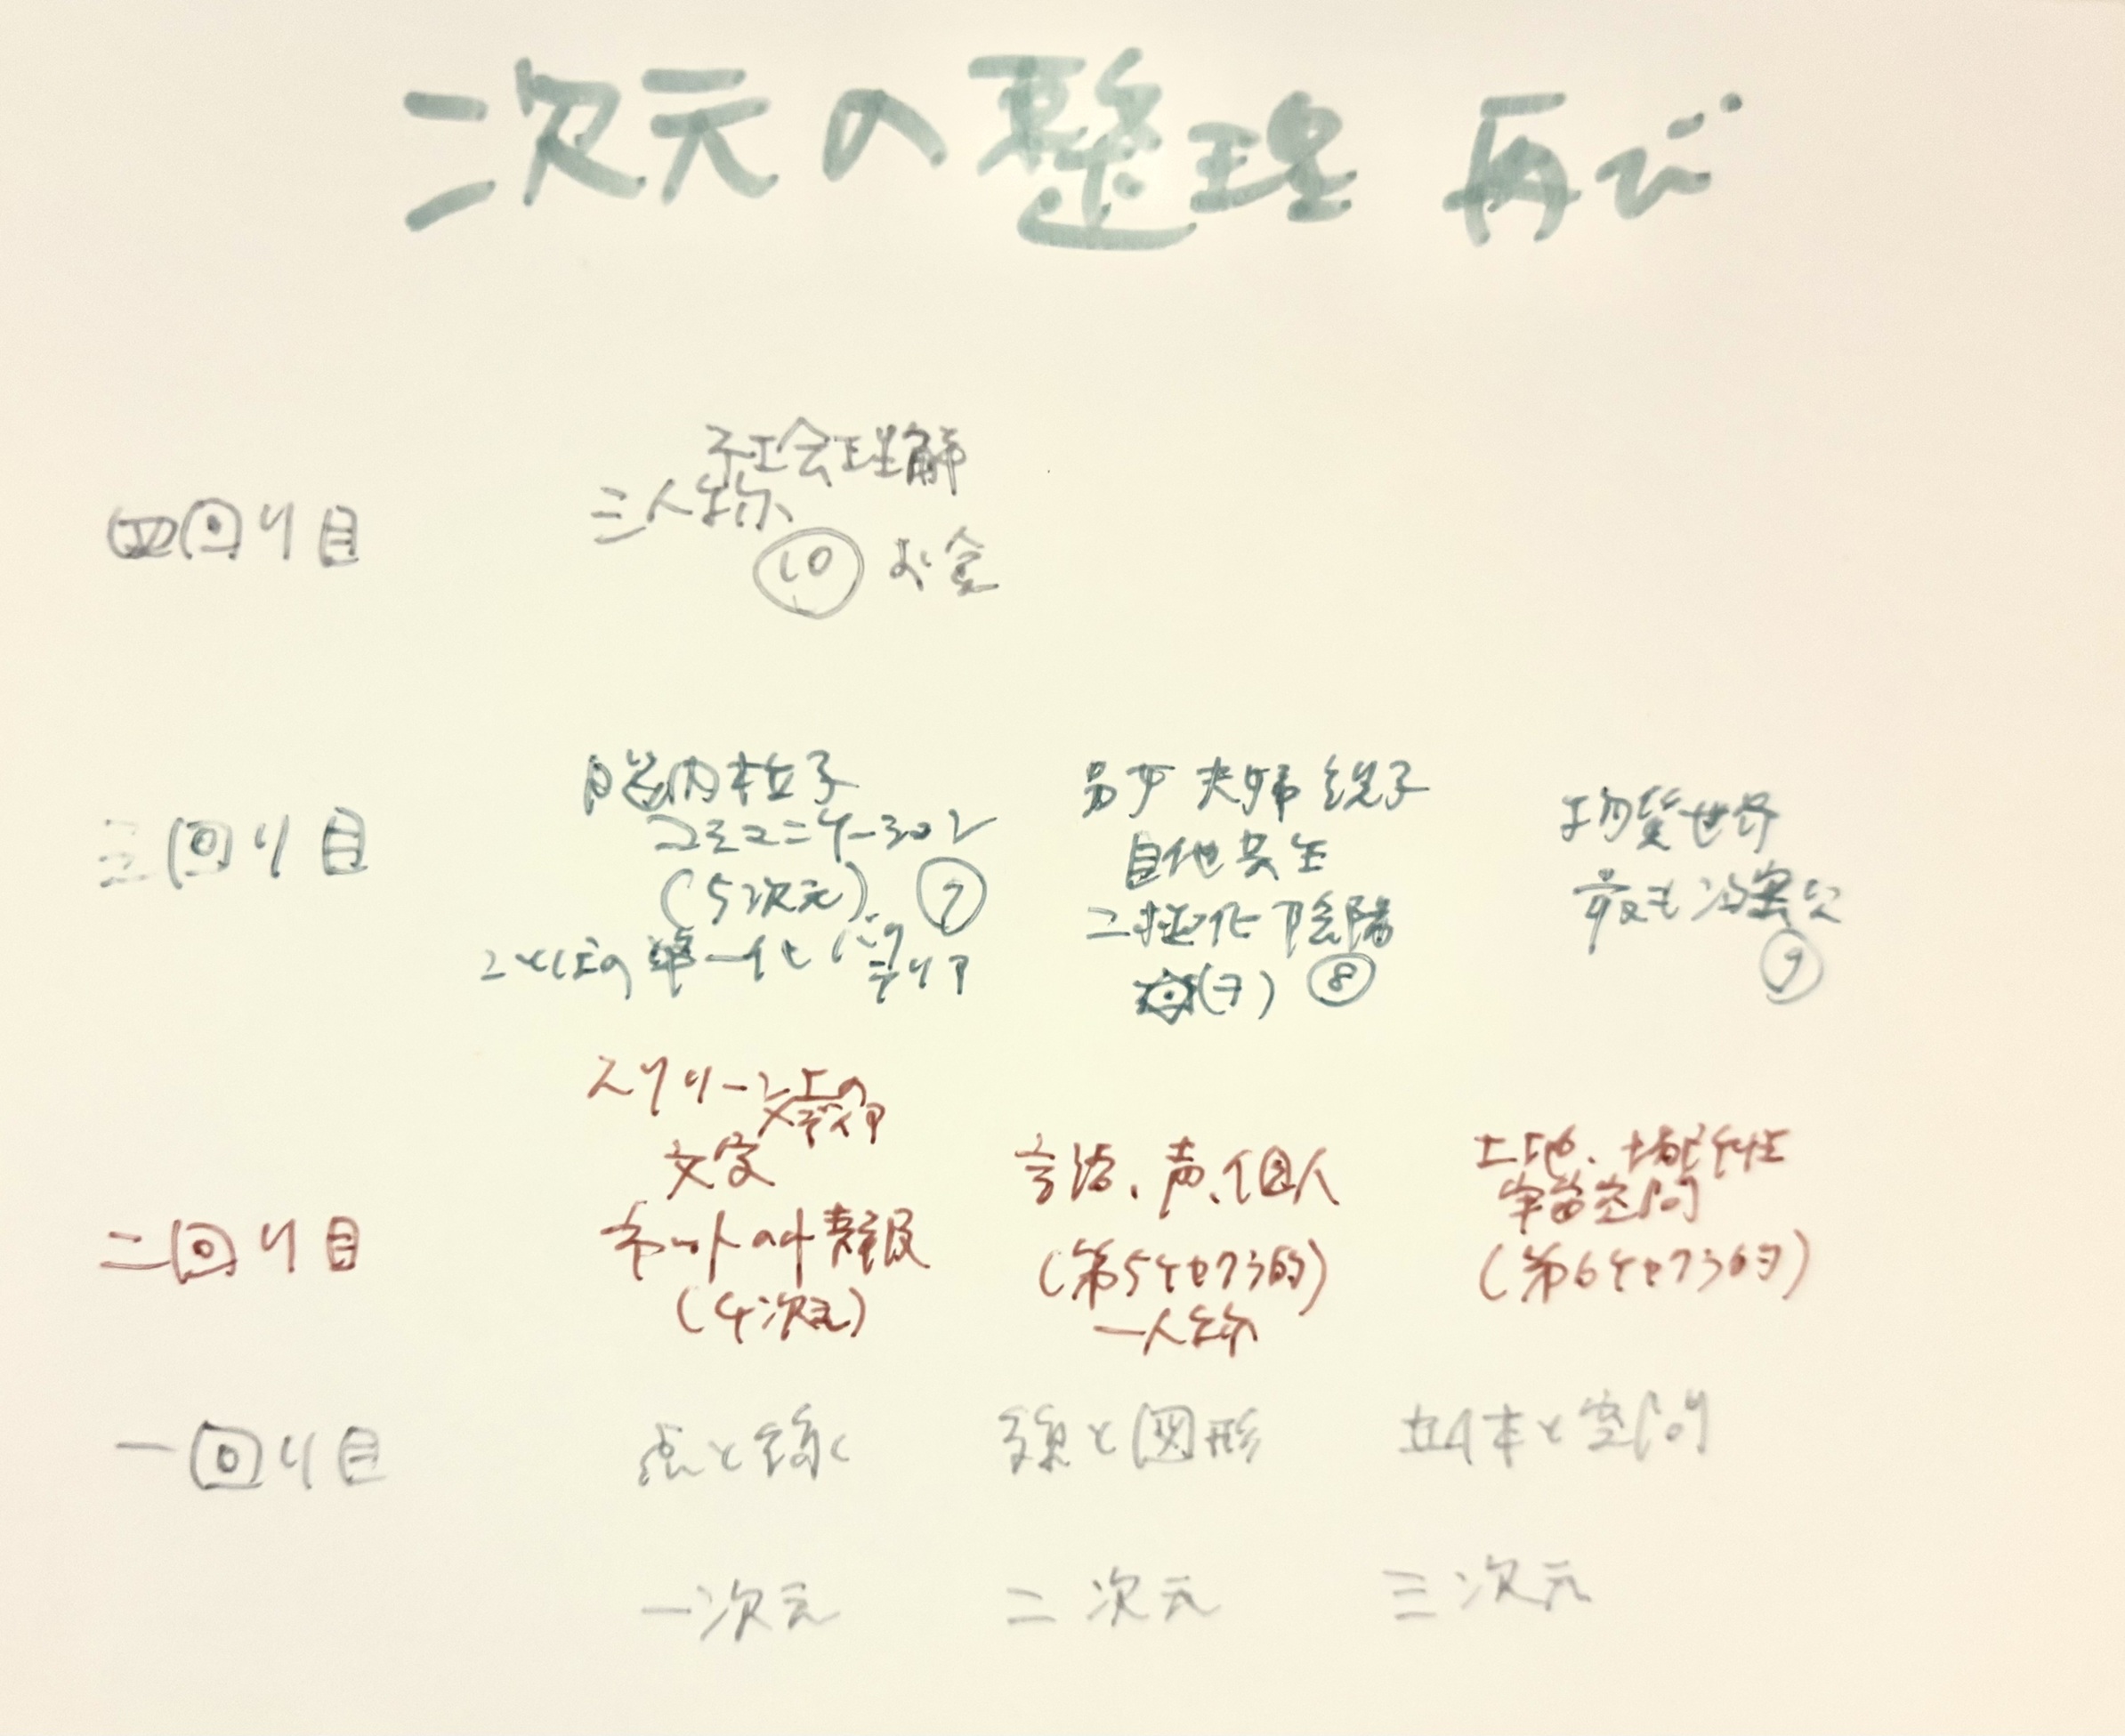 二次元の整理 再び
四回り目
社会理解
三人称
⑩ お金
三回り目
脳内粒子
コミュニケーション
(5次元) ⑦
単一化
男女 夫婦 親子
自他共生
二極化 陰陽
⑧
物質世界
最も
⑨
二回り目
スクリーン上の
メディア
文字
ネットの情報
(4次元)
言語、声、個人
(第5
一人称
土地、場所性
宇宙空間
(第6
一回り目
点と線
線と図形
立体と空間
一次元
二次元
三次元